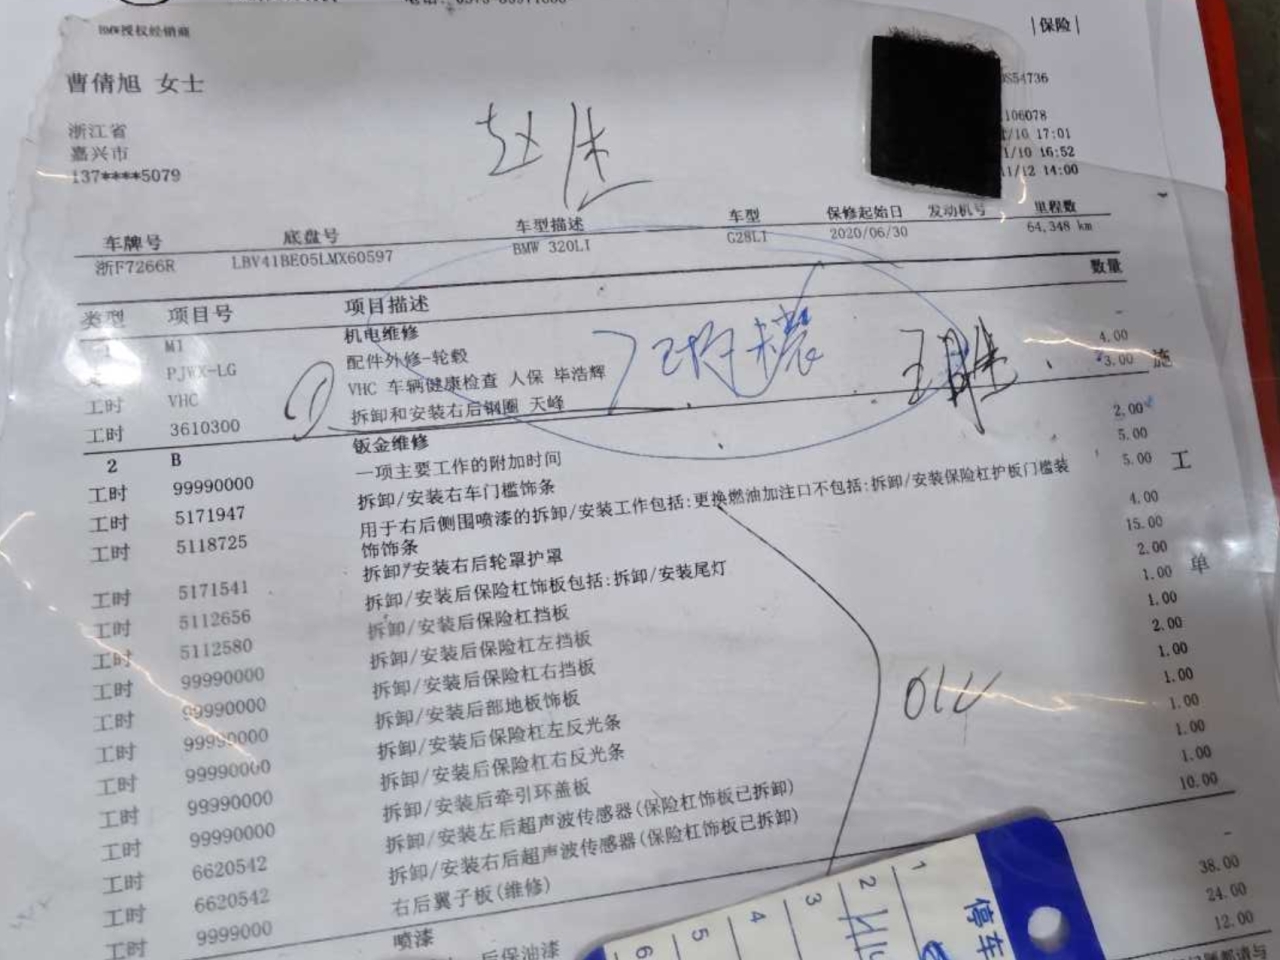 BMW授权经销商
|保险|
曹倩旭 女士
浙江省
嘉兴市
137****5079
S54736
106078
/10 17:01
1/10 16:52
1/12 14:00
车牌号 底盘号 车型描述 车型 保修起始日 发动机号 里程数
浙F7266R LBV41BE05LMX60597 BMW 320LI G28LI 2020/06/30 64,348 km
类型 项目号 项目描述 数量
1 M1 机电维修 -
PJWX-LG 配件外修-轮毂 4.00
工时 VHC VHC 车辆健康检查 人保 毕浩辉 3.00
工时 3610300 拆卸和安装右后钢圈 天峰
2 B 钣金维修 2.00
工时 99990000 一项主要工作的附加时间 5.00
工时 5171947 拆卸/安装右车门槛饰条 5.00
工时 5118725 用于右后侧围喷漆的拆卸/安装工作包括:更换燃油加注口不包括:拆卸/安装保险杠护板门槛装
饰饰条 4.00
工时 5171541 拆卸/安装右后轮罩护罩 15.00
工时 5112656 拆卸/安装后保险杠饰板包括:拆卸/安装尾灯 2.00
工时 5112580 拆卸/安装后保险杠挡板 1.00
工时 99990000 拆卸/安装后保险杠左挡板 1.00
工时 99990000 拆卸/安装后保险杠右挡板 2.00
工时 99990000 拆卸/安装后部地板饰板 1.00
工时 99990000 拆卸/安装后保险杠左反光条 1.00
工时 99990000 拆卸/安装后保险杠右反光条 1.00
工时 99990000 拆卸/安装后牵引环盖板 1.00
工时 6620542 拆卸/安装左后超声波传感器(保险杠饰板已拆卸) 1.00
工时 6620542 拆卸/安装右后超声波传感器(保险杠饰板已拆卸) 10.00
工时 9999000 右后翼子板(维修)
喷漆 -
后保油漆 38.00
24.00
12.00
施
工
单
停车
1
2
3
4
5
6